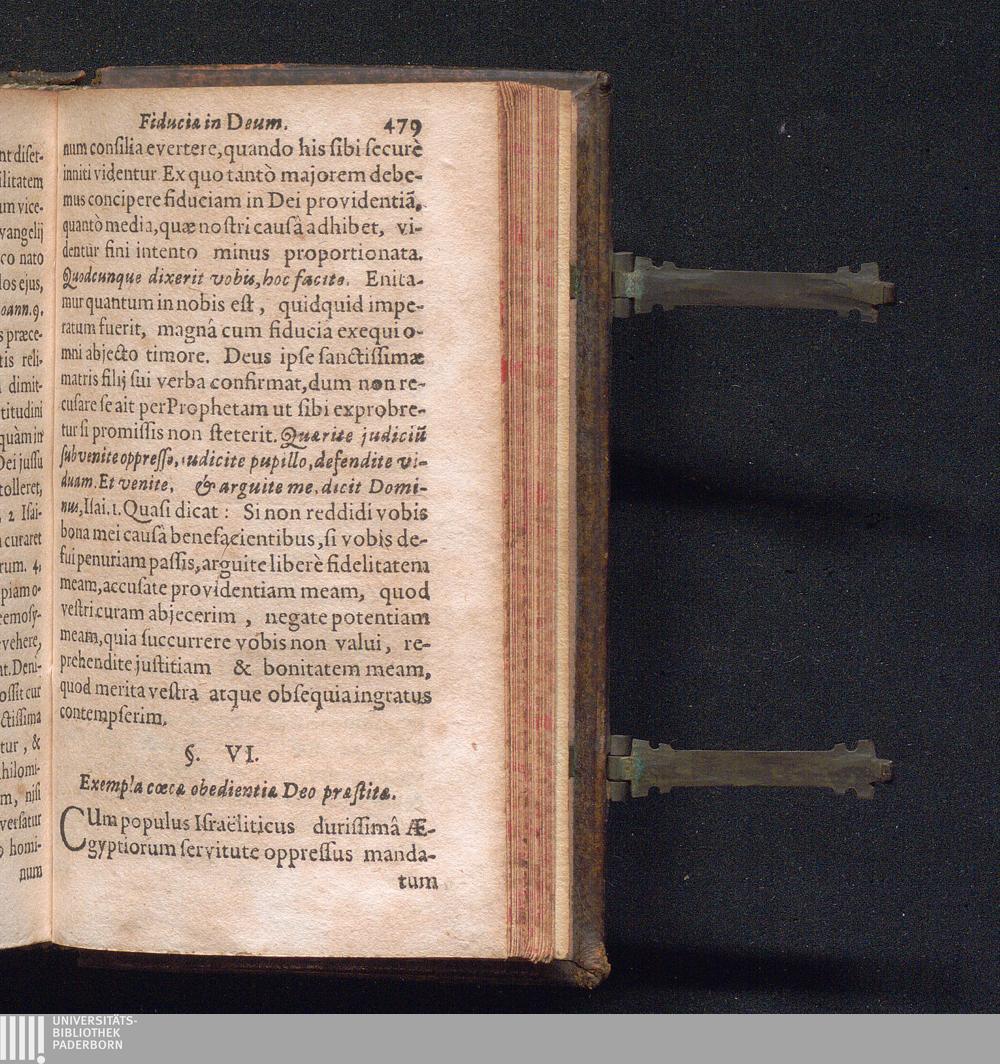 nt diſet-
ilitatem
um vice-
vangelij
co nato
los ejus,
oann.9.
s præce-
tis reli-
dimit-
titudini
quàm in
Dei juſſu
tolleret,
2 Iſai-
curaret
rum. 4.
piam o-
eemoſy-
vehere,
nt. Deni-
oſſit cur
ctiſſima
tur, &
hilomi-
m, niſi
verſatur
homi-
num
Fiducia in Deum. 479
num conſilia evertere, quando his ſibi ſecurè
inniti videntur Ex quo tantò majorem debe-
mus concipere fiduciam in Dei providentiã,
quantò media, quæ noſtri causâ adhibet, vi-
dentur fini intento minus proportionata.
Quodcunque dixerit vobis, hoc facite. Enita-
mur quantum in nobis eſt, quidquid impe-
ratum fuerit, magnâ cum fiducia exequi o-
mni abjecto timore. Deus ipſe ſanctiſſimæ
matris filij ſui verba confirmat, dum non re-
cuſare ſe ait per Prophetam ut ſibi exprobre-
tur ſi promiſſis non ſteterit. Quærite judiciũ
ſubvenite oppreſſo, iudicite pupillo, defendite vi-
duam. Et venite, & arguite me, dicit Domi-
nus, Iſai. 1. Quaſi dicat: Si non reddidi vobis
bona mei causâ benefacientibus, ſi vobis de-
fui penuriam paſſis, arguite liberè fidelitatem
meam, accuſate providentiam meam, quod
veſtri curam abjecerim, negate potentiam
meam, quia ſuccurrere vobis non valui, re-
prehendite juſtitiam & bonitatem meam,
quod merita veſtra atque obſequia ingratus
contempſerim.
§. VI.
Exempla cæcæ obedientiæ Deo præſtitæ.
CUm populus Iſraëliticus duriſſimâ Æ-
gyptiorum ſervitute oppreſſus manda-
tum
UNIVERSITÄTS-
BIBLIOTHEK
PADERBORN